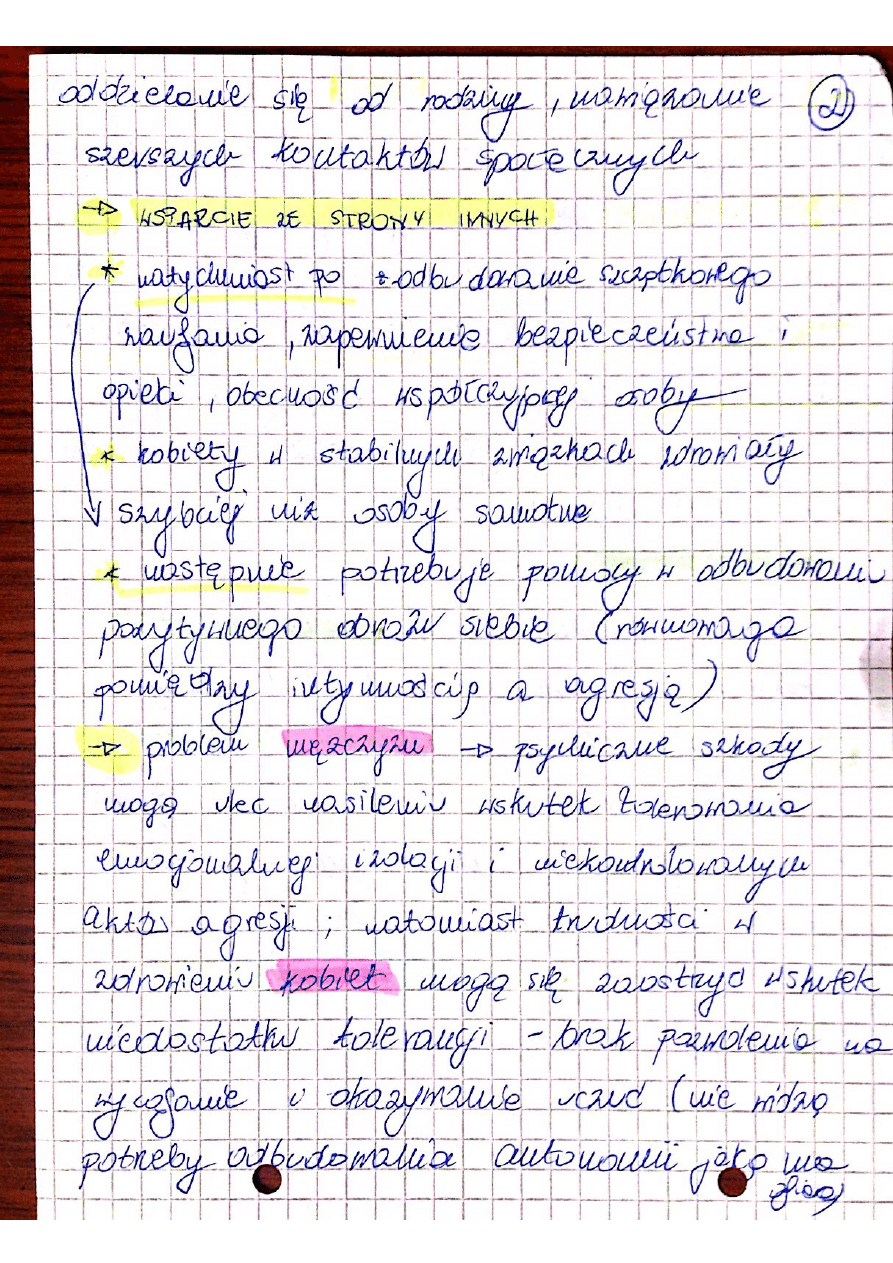 oddzielanie się od rodziny, nawiązanie
2
szerszych kontaktów społecznych
→ WSPARCIE ZE STRONY INNYCH
* natychmiast po - odbudowanie szczątkowego
zaufania, zapewnienie bezpieczeństwa i
opieki, obecność współczującej osoby
* kobiety w stabilnych związkach zdrowiały
szybciej niż osoby samotne
* następnie potrzebuje pomocy w odbudowaniu
pozytywnego obrazu siebie (równowaga
pomiędzy intymnością a agresją)
→ problem mężczyzn → psychiczne szkody
mogą ulec nasileniu wskutek tolerowania
emocjonalnej izolacji i niekontrolowanych
aktów agresji; natomiast trudności w
zdrowieniu kobiet mogą się zaostrzyć wskutek
niedostatku tolerancji - brak pozwolenia na
wycofanie i okazywanie uczuć (nie widzą
potrzeby odbudowania autonomii jaką ma
ofiara)